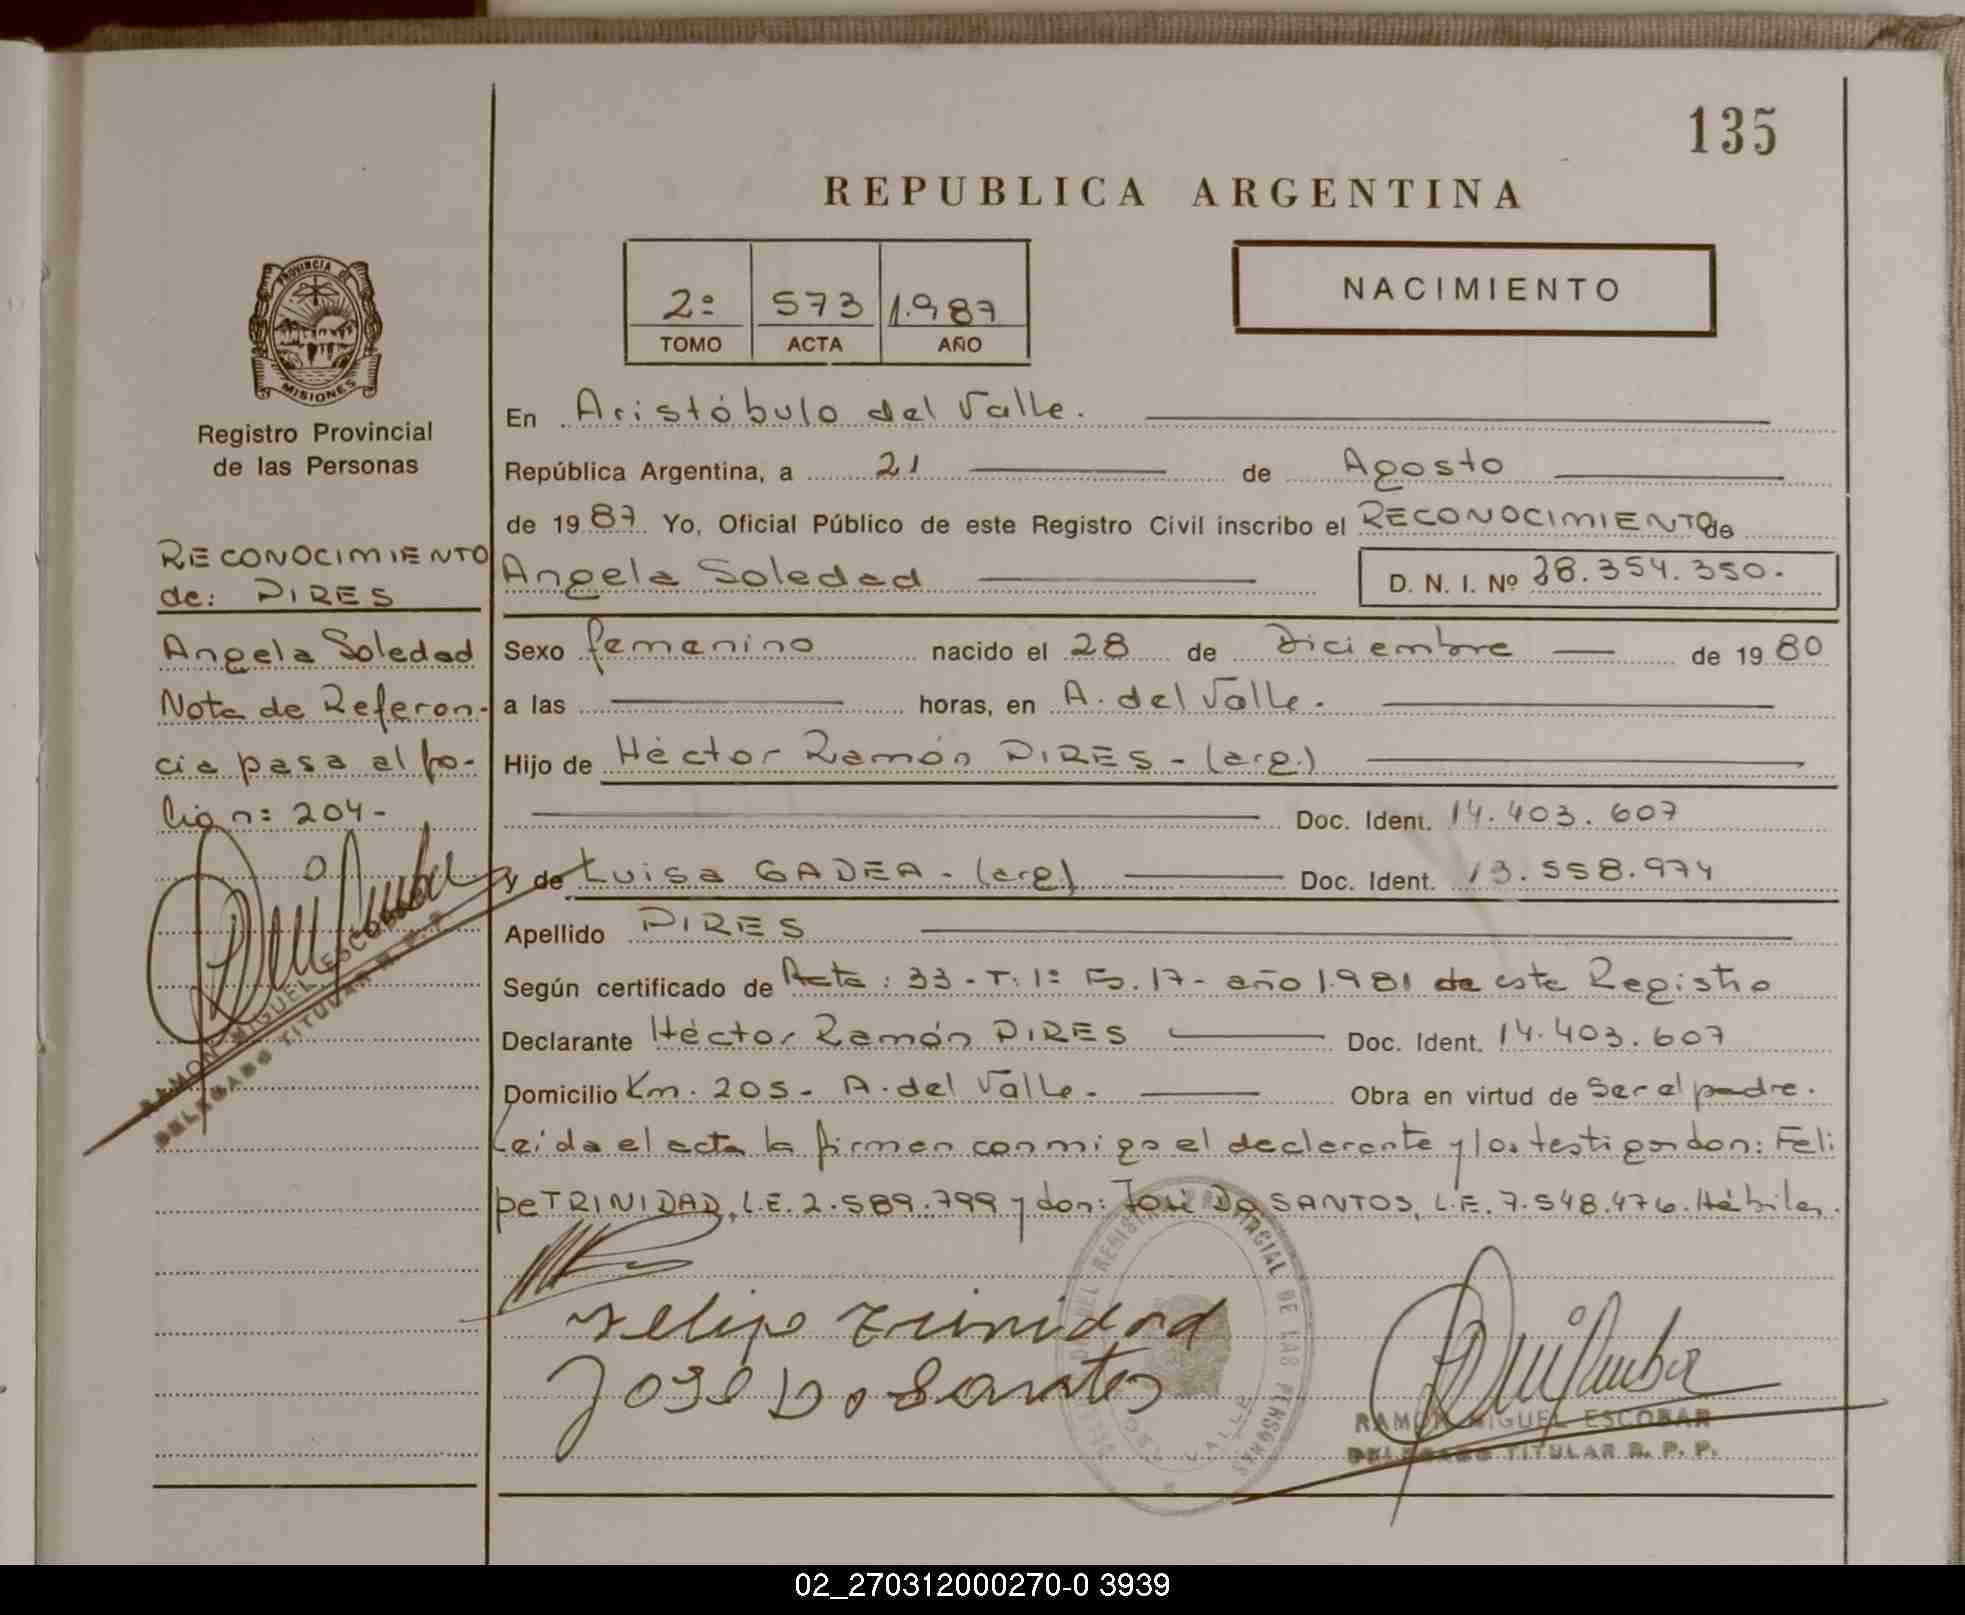 135
REPUBLICA ARGENTINA
2º 573 1.987
TOMO ACTA AÑO
NACIMIENTO
PROVINCIA DE
MISIONES
Registro Provincial
de las Personas
RECONOCIMIENTO
de: PIRES
Angela Soledad
Nota de Referen-
cia pasa al fo-
lio nº 204-
RAMON MIGUEL ESCOBAR
DELEGADO TITULAR R. P. P.
En Aristóbulo del Valle.
República Argentina, a 21 de Agosto
de 1987. Yo, Oficial Público de este Registro Civil inscribo el RECONOCIMIENTO de
Angela Soledad D. N. I. Nº 28.354.350.
Sexo femenino nacido el 28 de Diciembre de 1980
a las horas, en A. del Valle.
Hijo de Héctor Ramón PIRES - (arg.)
Doc. Ident. 14.403.607
y de Luisa GADEA - (arg) Doc. Ident. 13.558.974
Apellido PIRES
Según certificado de Acta: 33 - T: 1º Fº. 17 - año 1.981 de este Registro
Declarante Héctor Ramón PIRES Doc. Ident. 14.403.607
Domicilio Km. 205 - A. del Valle. Obra en virtud de ser el padre.
Leída el acta la firman conmigo el declarante y los testigos don: Feli
pe TRINIDAD, L.E. 2.589.799 y don: José Do SANTOS, L.E. 7.548.476. Hábiles.
Felipe Trinidad
José Do Santos
RAMON MIGUEL ESCOBAR
DELEGADO TITULAR R. P. P.
02_270312000270-0 3939